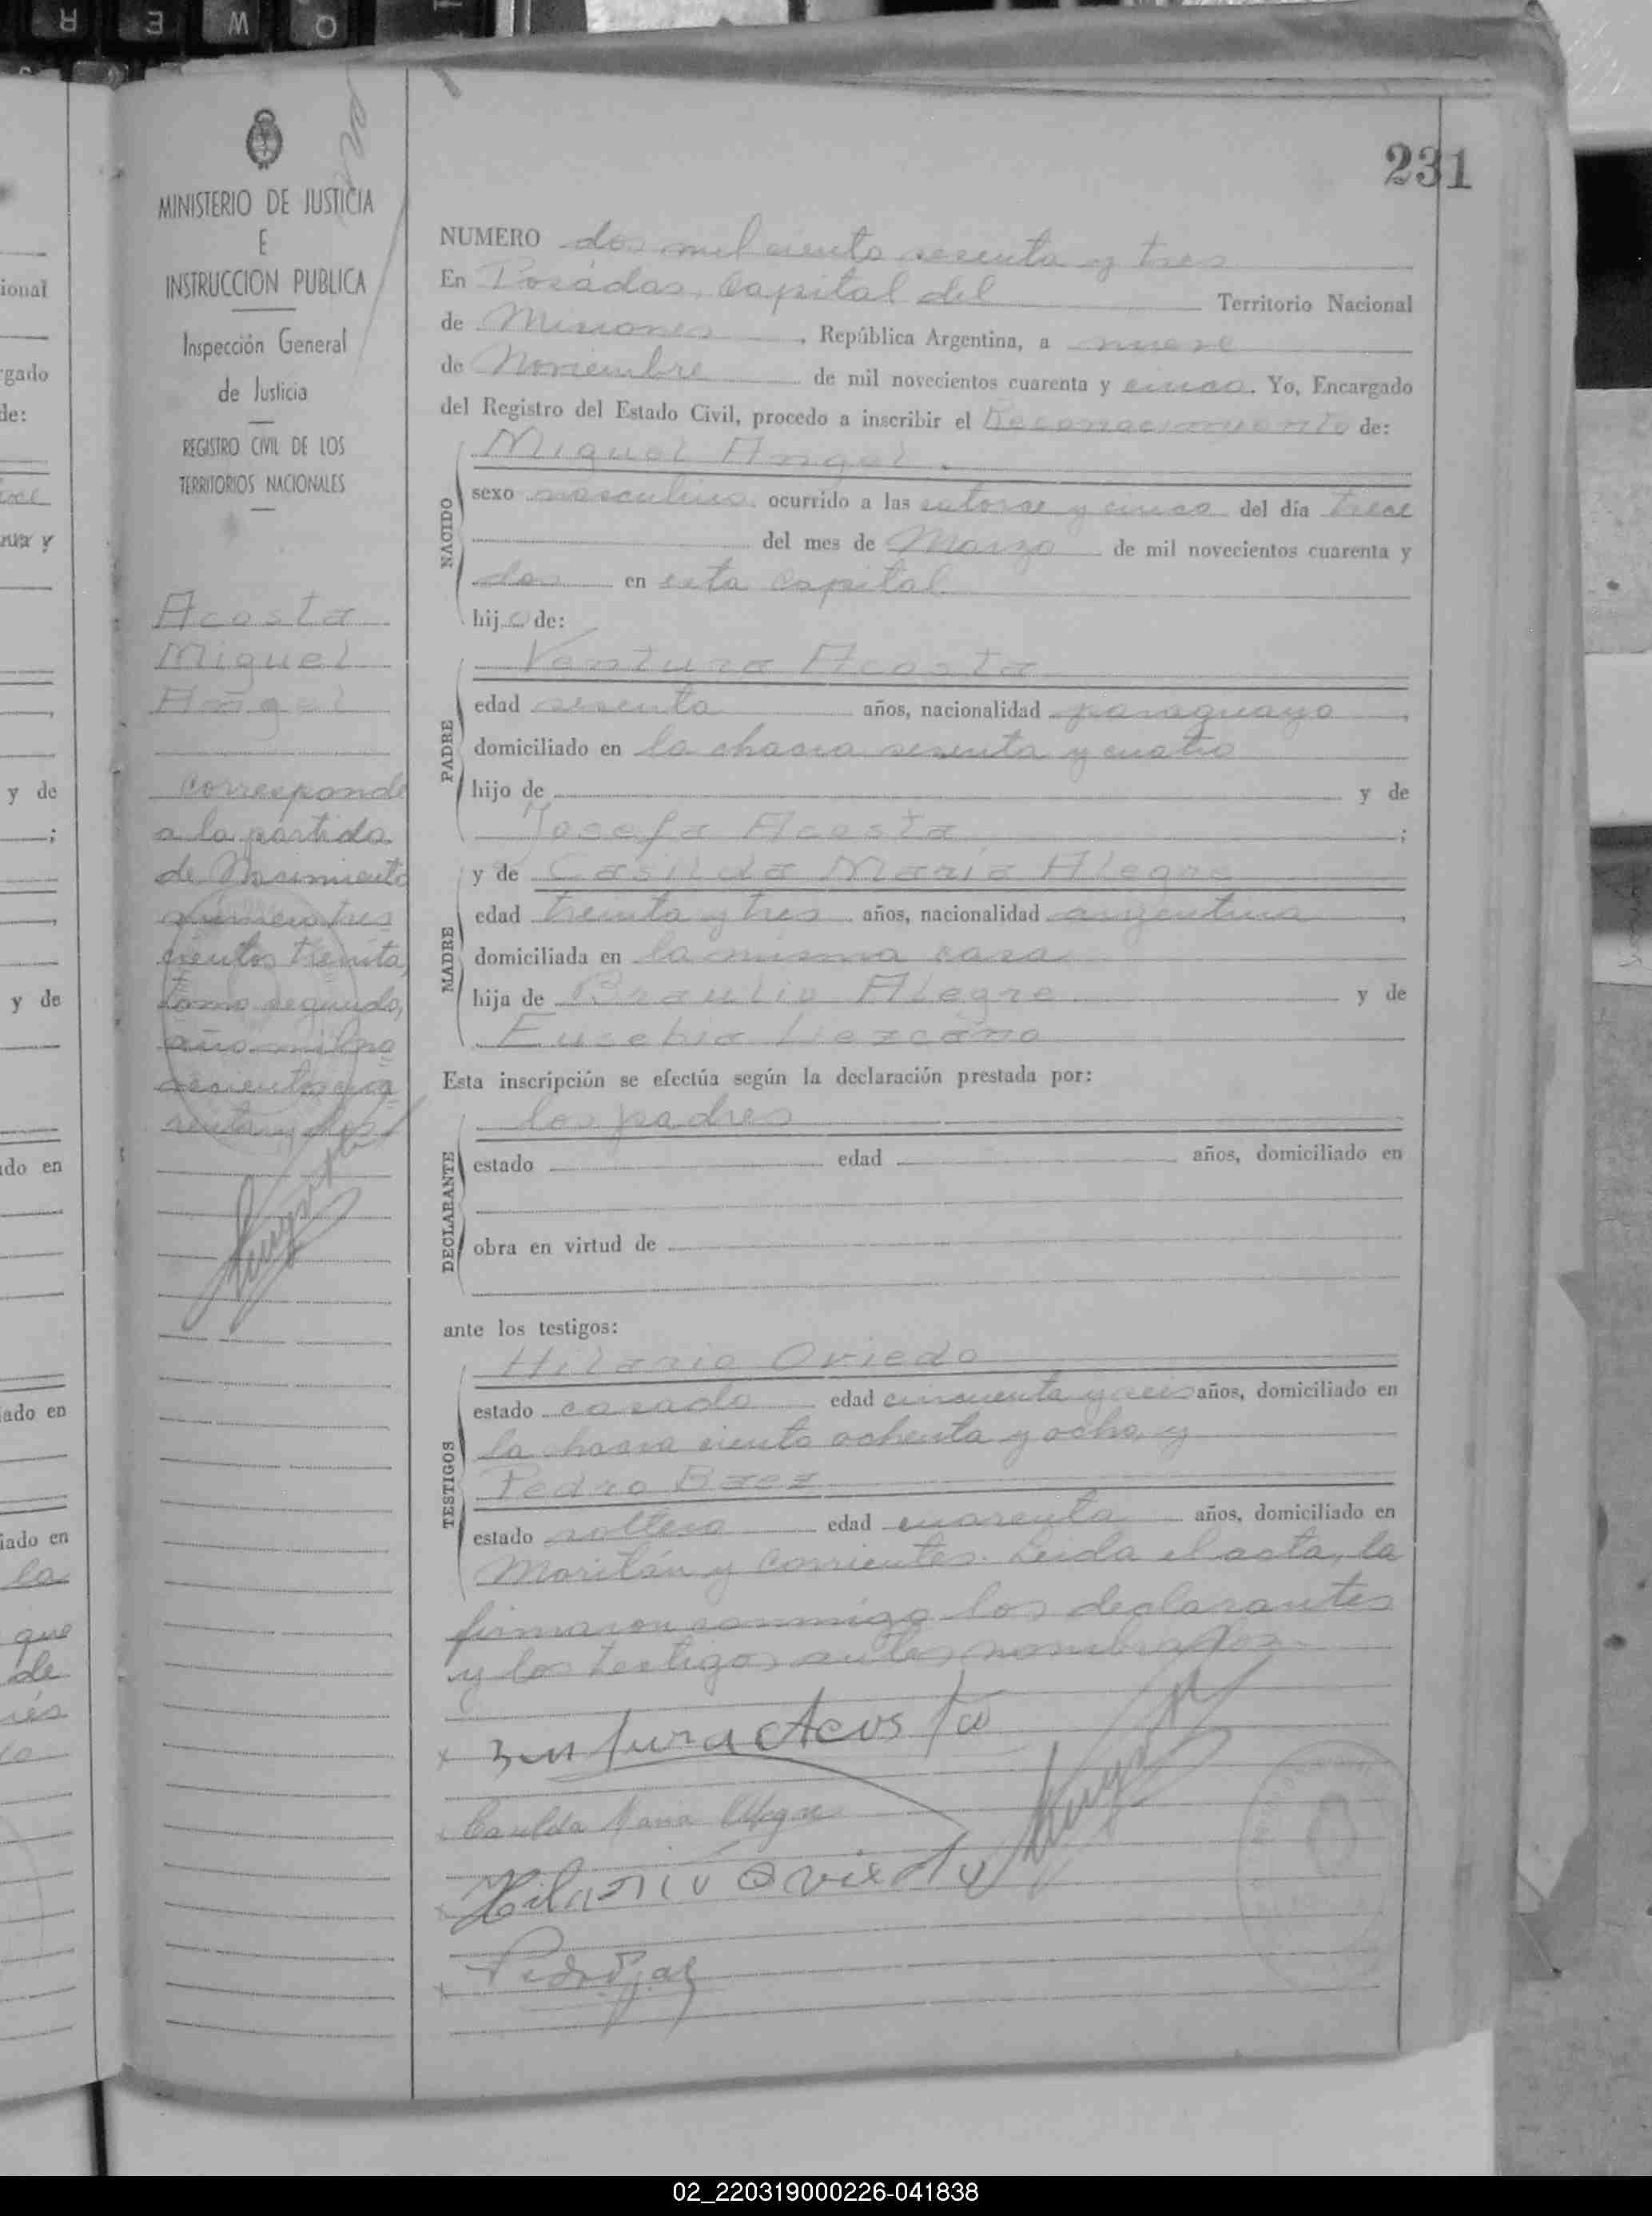 231
MINISTERIO DE JUSTICIA
E
INSTRUCCION PUBLICA
Inspección General
de Justicia
REGISTRO CIVIL DE LOS
TERRITORIOS NACIONALES
Acosta
Miguel
Angel
Corresponde
a la partida
de Nacimiento
número tres
cientos treinta,
tomo segundo,
año mil no
vecientos cua
renta y dos
NUMERO dos mil ciento sesenta y tres
En Posadas, Capital del Territorio Nacional
de Misiones, República Argentina, a nueve
de Noviembre de mil novecientos cuarenta y cinco. Yo, Encargado
del Registro del Estado Civil, procedo a inscribir el Reconocimiento de:
Miguel Angel.
NACIDO
sexo masculino ocurrido a las catorce y cinco del día trece
del mes de Marzo de mil novecientos cuarenta y
dos en esta capital
hijo de:
Ventura Acosta
PADRE
edad sesenta años, nacionalidad paraguaya,
domiciliado en la chacra sesenta y cuatro
hijo de y de
Josefa Acosta;
y de Casilda María Alegre
MADRE
edad treinta y tres años, nacionalidad argentina,
domiciliada en la misma casa
hija de Braulio Alegre y de
Eusebia Lezcano
Esta inscripción se efectúa según la declaración prestada por:
los padres
DECLARANTE
estado edad años, domiciliado en
obra en virtud de
ante los testigos:
Hilario Oviedo
TESTIGOS
estado casado edad cincuenta y seis años, domiciliado en
la chacra ciento ochenta y ocho y
Pedro Baez
estado soltero edad cuarenta años, domiciliado en
Moritán y Corrientes. Leída el acta, la
firmaron conmigo los declarantes
y los testigos antes nombrados.
x Bentura Acosta
Casilda Maria Alegre
Hilario Oviedo
x Pedro
ional
rgado
de:
y de
y de
ado en
ado en
iado en
la
que
de
02_220319000226-041838